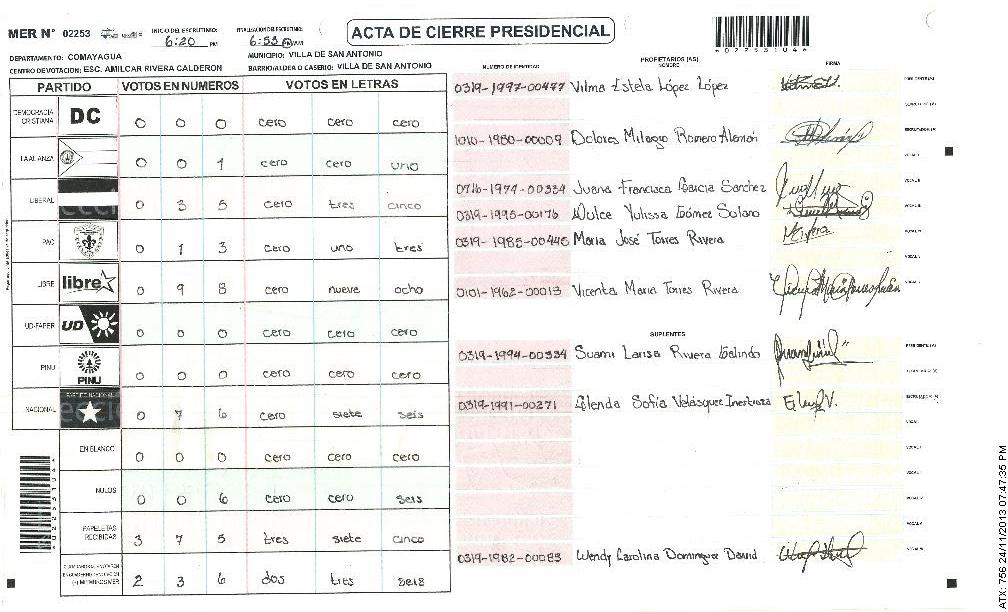 MER Nº 02253
INICIO DEL ESCRUTINIO: 6:20 PM
FINALIZACION DEL ESCRUTINIO: 6:53 PM/AM
ACTA DE CIERRE PRESIDENCIAL
DEPARTAMENTO: COMAYAGUA
MUNICIPIO: VILLA DE SAN ANTONIO
CENTRO DE VOTACION: ESC. AMILCAR RIVERA CALDERON
BARRIO/ALDEA O CASERIO: VILLA DE SAN ANTONIO
PARTIDO VOTOS EN NUMEROS VOTOS EN LETRAS
DEMOCRACIA CRISTIANA DC 0 0 0 cero cero cero
LA ALIANZA 0 0 1 cero cero uno
LIBERAL 0 3 5 cero tres cinco
PAC 0 1 3 cero uno tres
LIBRE libre 0 9 8 cero nueve ocho
UD-FAPER UD 0 0 0 cero cero cero
PINU PINU 0 0 0 cero cero cero
NACIONAL PARTIDO NACIONAL 0 7 6 cero siete seis
EN BLANCO 0 0 0 cero cero cero
NULOS 0 0 6 cero cero seis
PAPELETAS RECIBIDAS 3 7 5 tres siete cinco
2 3 6 dos tres seis
NUMERO DE IDENTIDAD
PROPIETARIOS (AS)
NOMBRE
FIRMA
0319-1997-00477 Vilma Estela López López
PRESIDENTE(A)
SECRETARIO (A)
1010-1980-00009 Dolores Milagro Romero Alemán
ESCRUTADOR (A)
VOCAL I
0716-1974-00334 Juana Francisca Garcia Sanchez
VOCAL II
0319-1995-00176 Dulce Yulissa Gómez Solano
0319-1985-00446 Maria José Torres Rivera
0101-1962-00013 Vicenta Maria Torres Rivera
SUPLENTES
0319-1994-00334 Suami Larisa Rivera Galindo
PRESIDENTE(A)
0319-1991-00271 Glenda Sofia Velásquez Inestroza
0319-1982-00083 Wendy Carolina Dominguez David
ATX: 756 24/11/2013 07:47:35 PM